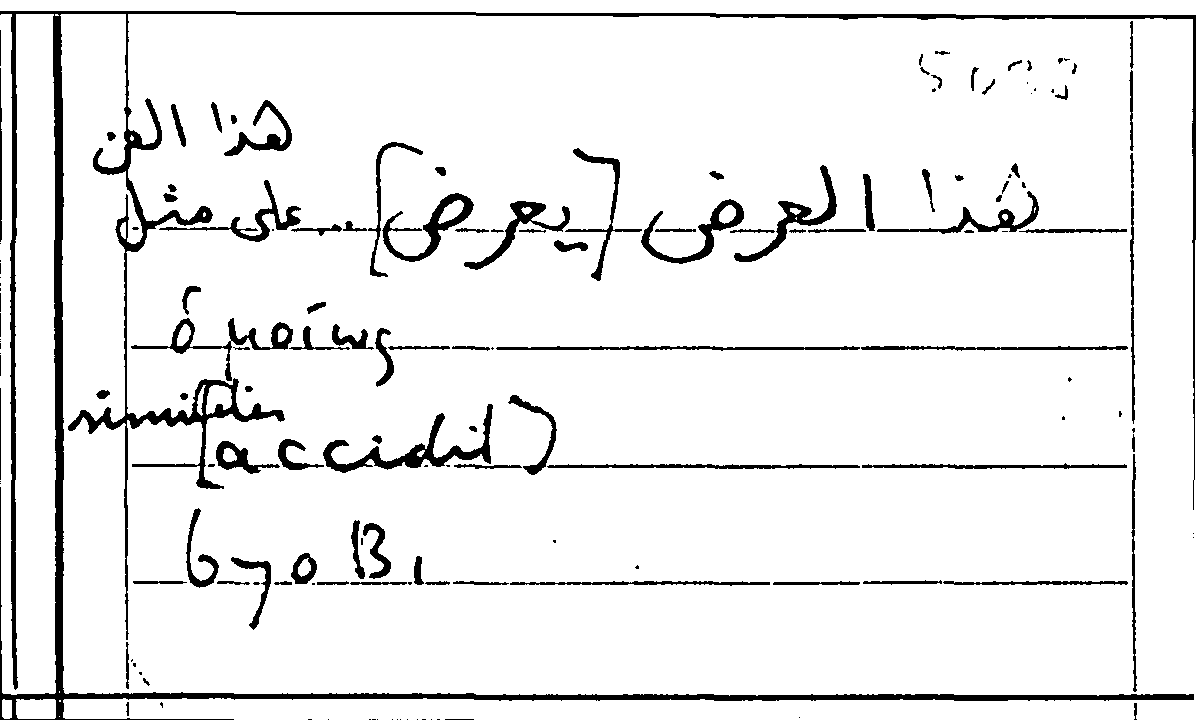 هذا العرض [يعرض] ... على مثل
هذا الفن
ὁμοίως
similis
[accidit]
670 B1